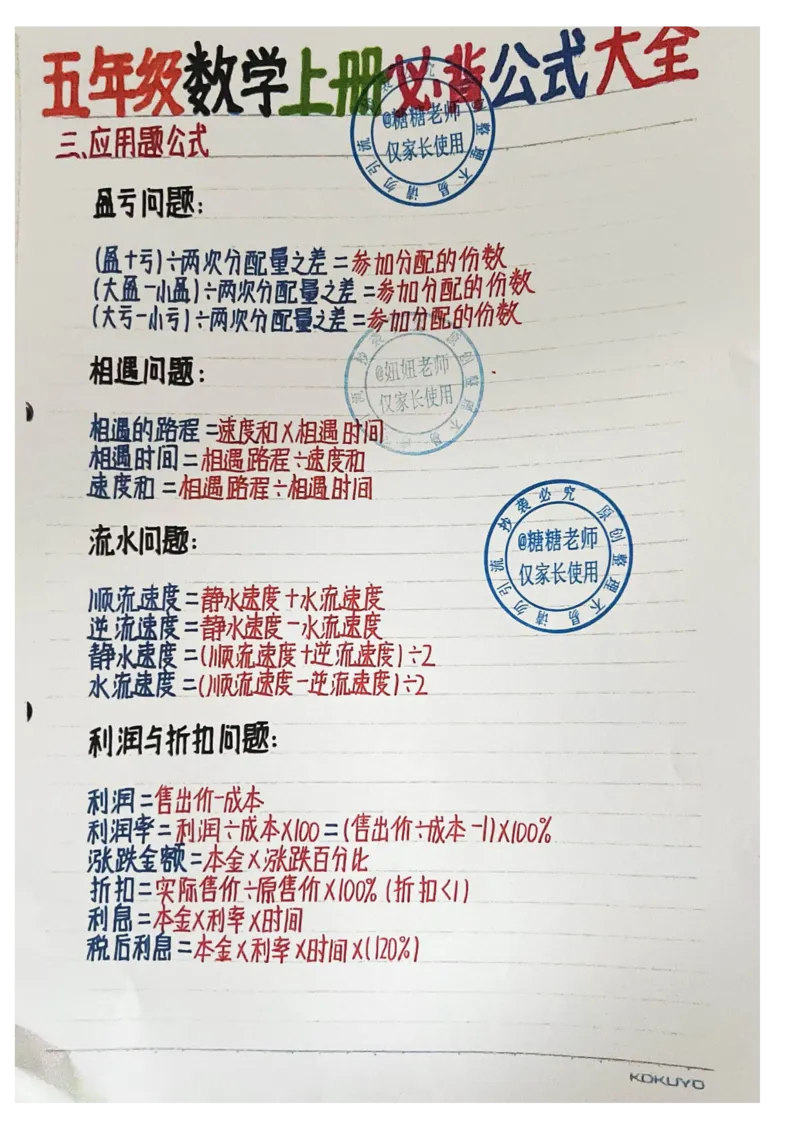 五年级数学上册必背公式大全
三、应用题公式
盈亏问题:
(盈+亏)÷两次分配量之差=参加分配的份数
(大盈-小盈)÷两次分配量之差=参加分配的份数
(大亏-小亏)÷两次分配量之差=参加分配的份数
相遇问题:
相遇的路程=速度和×相遇时间
相遇时间=相遇路程÷速度和
速度和=相遇路程÷相遇时间
流水问题:
顺流速度=静水速度+水流速度
逆流速度=静水速度-水流速度
静水速度=(顺流速度+逆流速度)÷2
水流速度=(顺流速度-逆流速度)÷2
利润与折扣问题:
利润=售出价-成本
利润率=利润÷成本×100=(售出价÷成本-1)×100%
涨跌金额=本金×涨跌百分比
折扣=实际售价÷原售价×100%(折扣<1)
利息=本金×利率×时间
税后利息=本金×利率×时间×(120%)
@糖糖老师
仅家长使用
@妞妞老师
仅家长使用
抄袭必究 原创整理不易 请勿引流
@糖糖老师
仅家长使用
KOKUYO